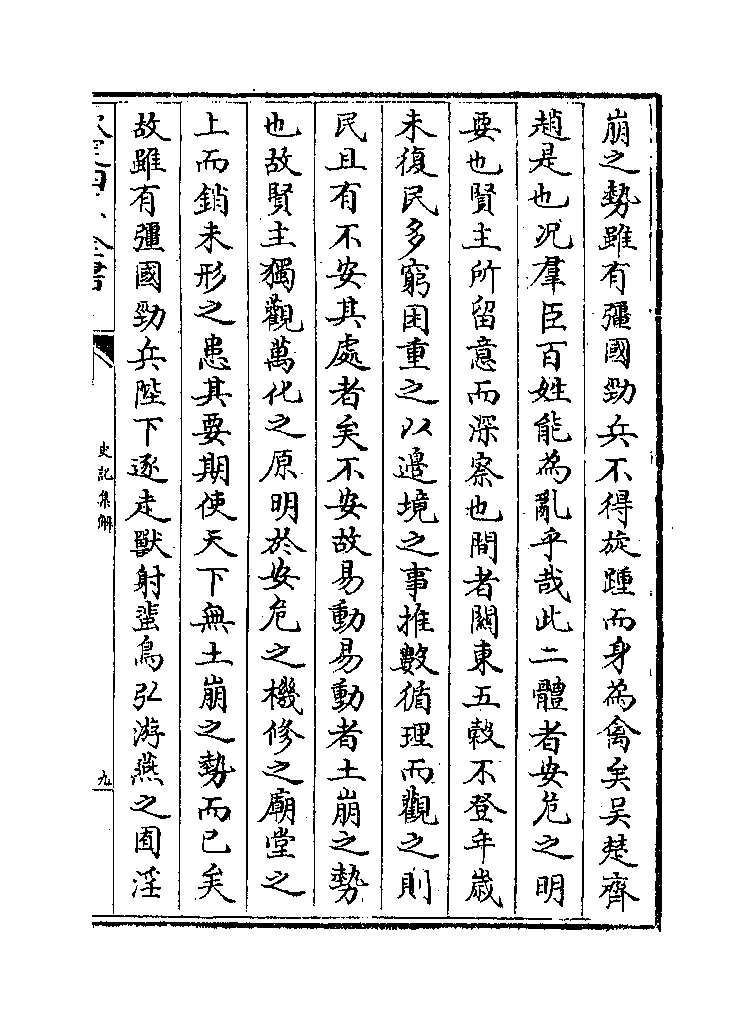 崩之勢雖有彊國勁兵不得旋踵而身為禽矣吳楚齊
趙是也況羣臣百姓能為亂乎哉此二體者安危之明
要也賢主所留意而深察也間者關東五穀不登年歲
未復民多窮困重之以邊境之事推數循理而觀之則
民且有不安其處者矣不安故易動易動者土崩之勢
也故賢主獨觀萬化之原明於安危之機修之廟堂之
上而銷未形之患其要期使天下無土崩之勢而已矣
故雖有彊國勁兵陛下逐走獸射蜚鳥弘游燕之囿淫
史記集解
九